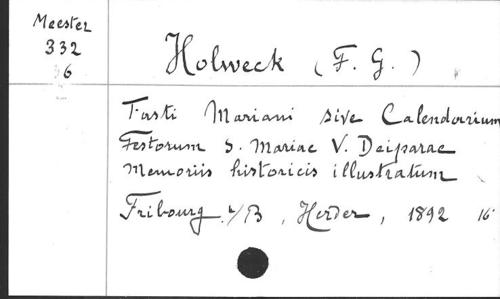 Meester
332
36
Holweck (F. G.)
Fasti Mariani sive Calendarium
Festorum S. Mariae V. Deiparae
Memoriis historicis illustratum
Fribourg s/B, Herder, 1892 16°